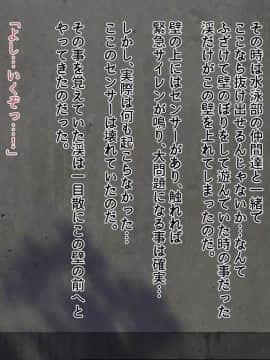 その時は水泳部の仲間達と一緒で
ここなら抜け出せるんじゃないか…なんて
ふざけて壁のぼりをして遊んでいた時の事だった
渓だけがこの壁を上れてしまったのだ。
壁の上にはセンサーがあり、触れれば
緊急サイレンが鳴り、大問題になる事は確実…
しかし、実際は何も起こらなかった…
ここのセンサーは壊れていたのだ。
その事を覚えていた渓は一目散にこの壁の前へと
やってきたのだった。
「よし…いくぞっ……!」